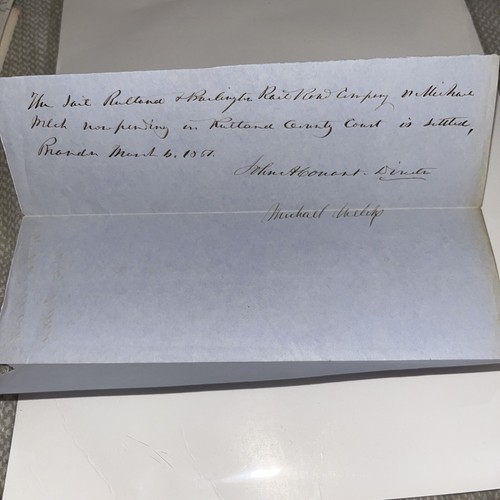 The Suit Rutland & Burlington Rail Road Company vs Michael
Welch now pending in Rutland County Court is settled,
Brandon March 6, 1851.
John A Conant - Director
Michael Welch